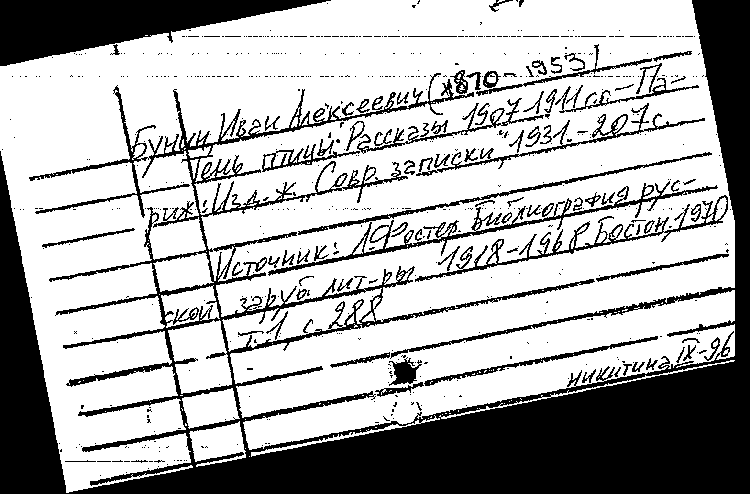 Бунин, Иван Алексеевич (1870-1953)
Тень птицы: Рассказы 1907-1911 гг. - Па-
риж: Изд. ж. „Совр. записки", 1931. - 207 с.
Источник: Л. Фостер. Библиография рус-
ской заруб. лит-ры 1918-1968. Бостон, 1970
т. 1, с. 288
никитина IX-96